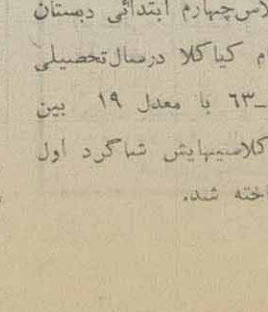 لاس چهارم ابتدائی دبستان
م کیاکلا درسال تحصیلی
ـ۶۳ با معدل ۱۹ بین
کلاسیهایش شاگرد اول
اخته شد.